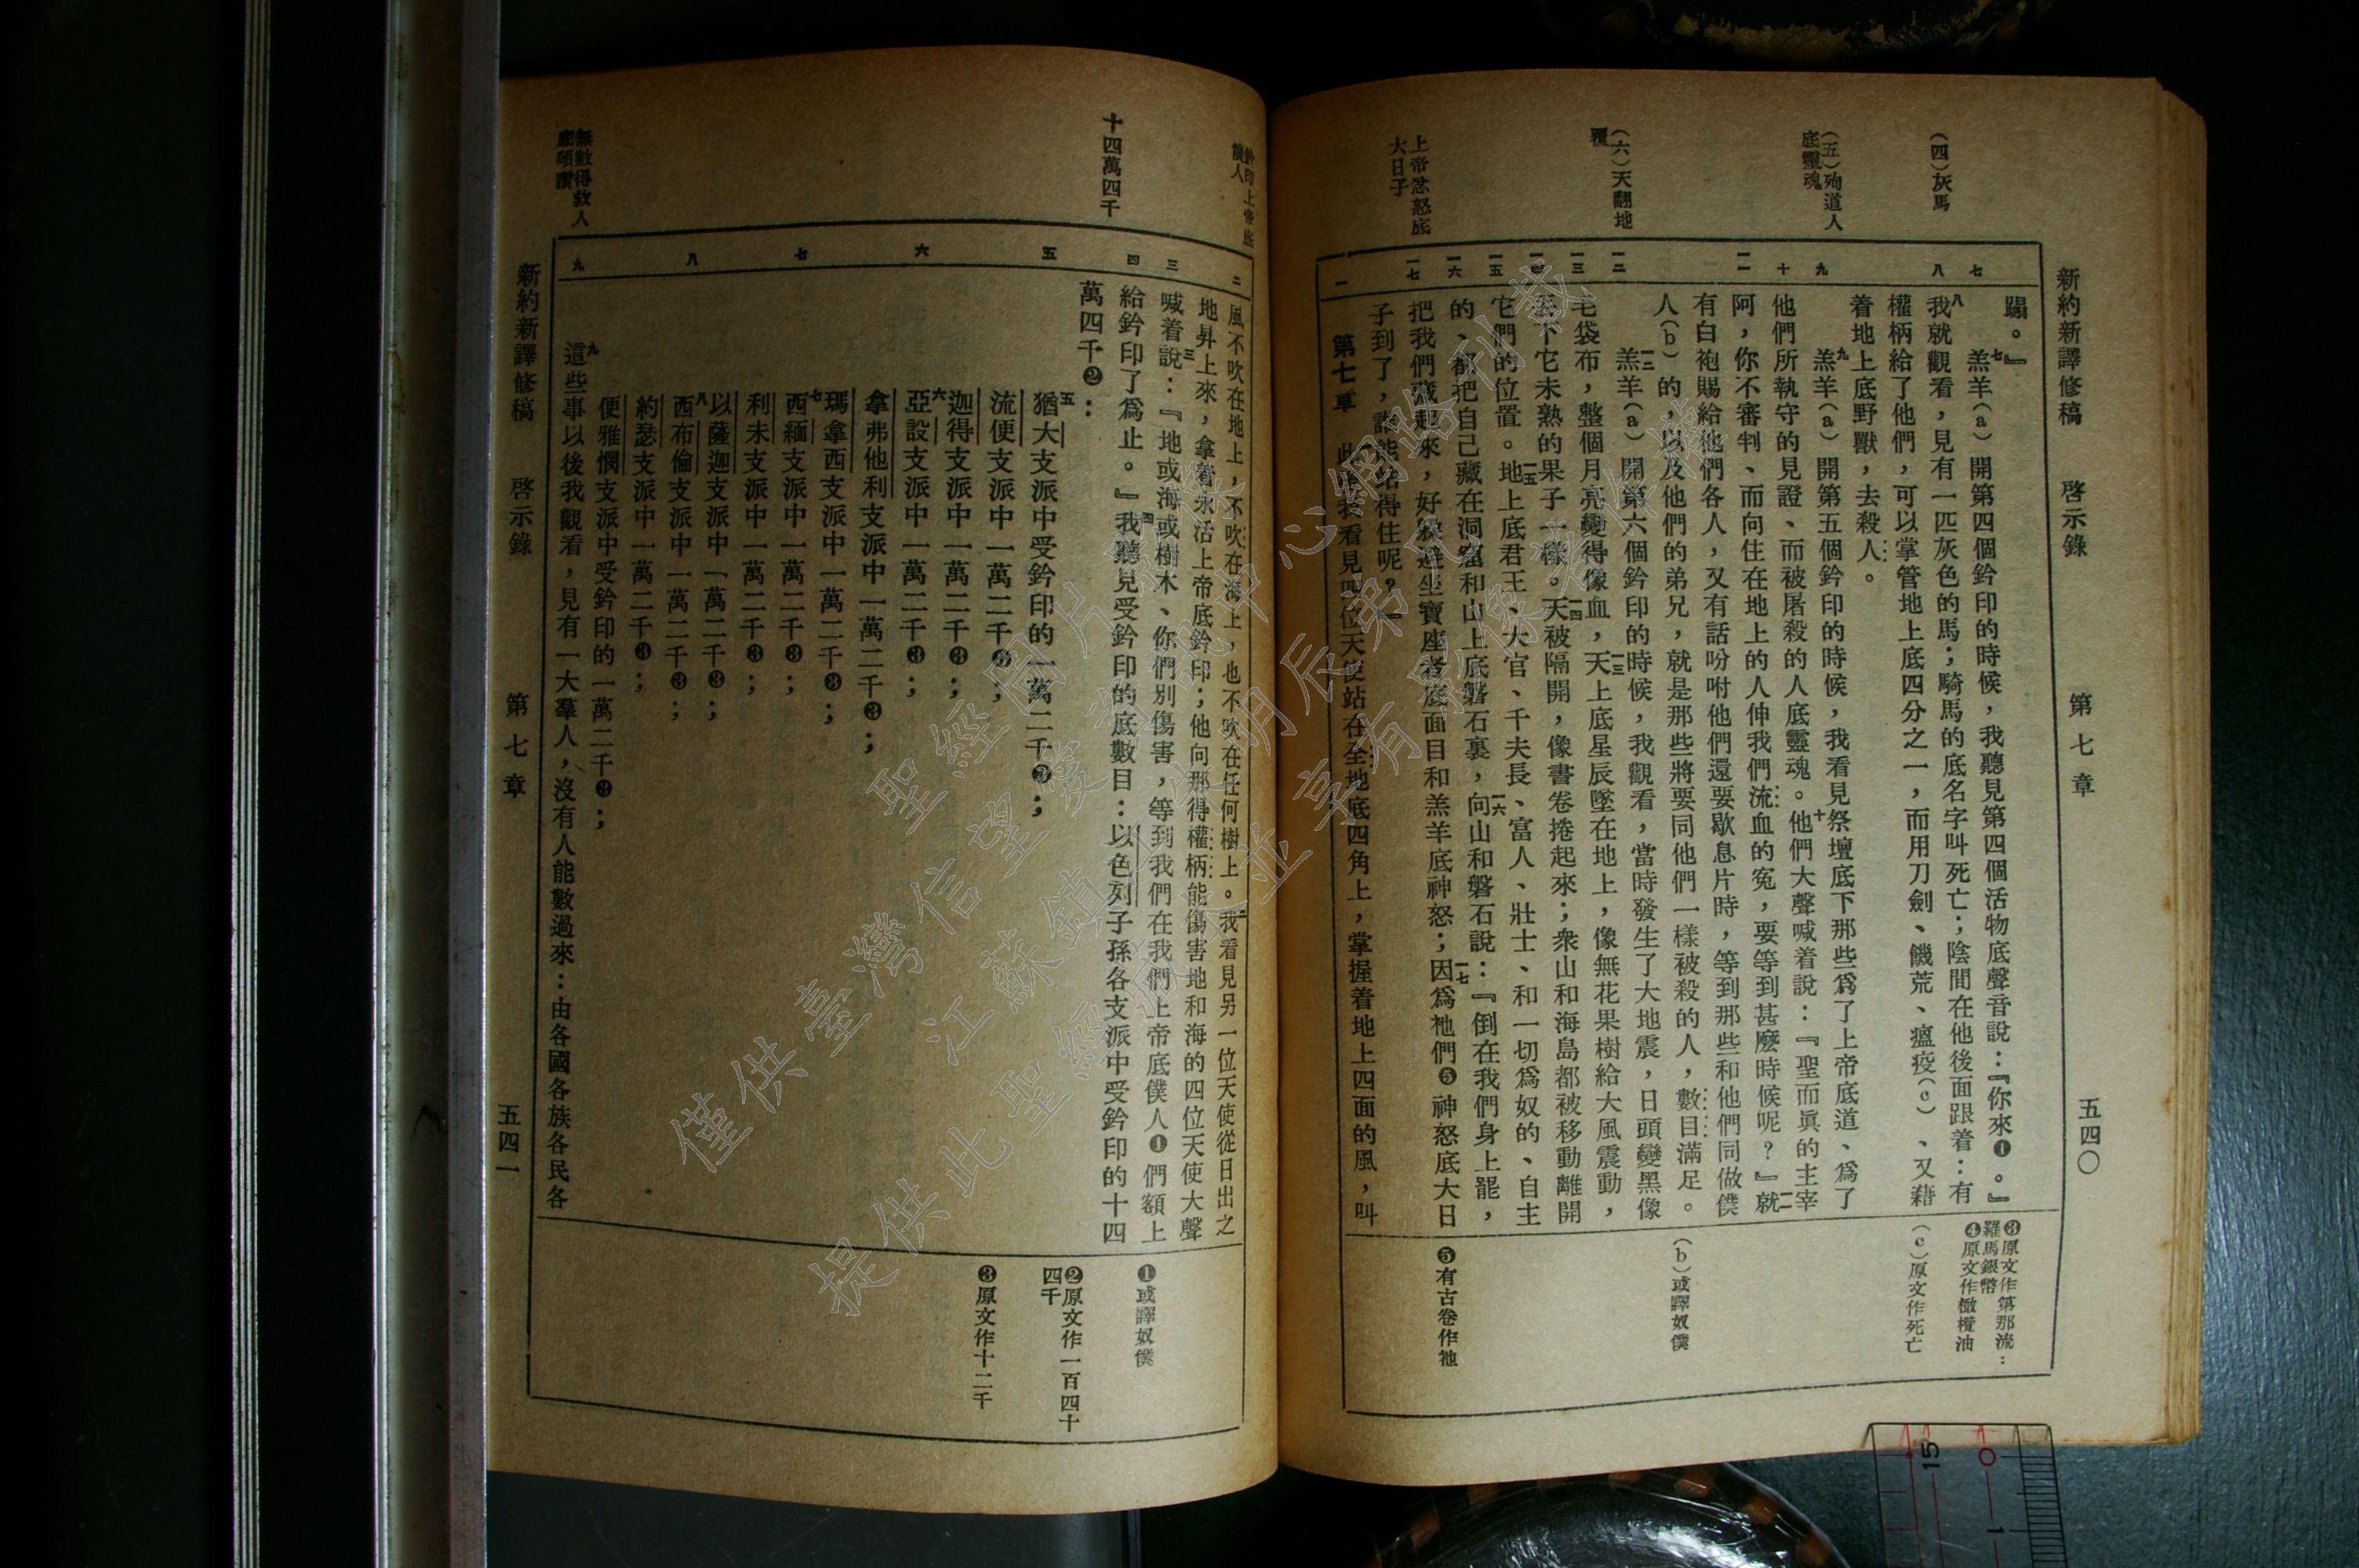 新約新譯修稿　啓示錄　第七章　五四〇
(四)灰馬
(五)殉道人
底靈魂
(六)天翻地
覆
上帝忿怒底
大日子
七
八
九
十
一一
一二
一三
一四
一五
一六
一七
一
蹋。』
七羔羊(a)開第四個鈐印的時候，我聽見第四個活物底聲音說：『你來❶。』
八我就觀看，見有一匹灰色的馬；騎馬的底名字叫死亡；陰間在他後面跟着：有
權柄給了他們，可以掌管地上底四分之一，而用刀劍、饑荒、瘟疫(c)、又藉
着地上底野獸，去殺人。
九羔羊(a)開第五個鈐印的時候，我看見祭壇底下那些爲了上帝底道、爲了
他們所執守的見證、而被屠殺的人底靈魂。十他們大聲喊着說：『聖而眞的主宰
阿，你不審判、而向住在地上的人伸我們流血的寃，要等到甚麽時候呢？』一一就
有白袍賜給他們各人，又有話吩咐他們還要歇息片時，等到那些和他們同做僕
人(b)的，以及他們的弟兄，就是那些將要同他們一樣被殺的人，數目滿足。
一二羔羊(a)開第六個鈐印的時候，我觀看，當時發生了大地震，日頭變黑像
毛袋布，整個月亮變得像血，一三天上底星辰墜在地上，像無花果樹給大風震動，
丟下它未熟的果子一樣。一四天被隔開，像書卷捲起來；衆山和海島都被移動離開
它們的位置。一五地上底君王、大官、千夫長、富人、壯士、和一切爲奴的、自主
的、都把自己藏在洞窟和山上底磐石裏，一六向山和磐石說：『倒在我們身上罷，
把我們藏起來，好躲避坐寶座者底面目和羔羊底神怒；一七因爲祂們❺神怒底大日
子到了，誰能站得住呢？』
第七章　一此後我看見四位天使站在全地底四角上，掌握着地上四面的風，叫
❸原文作第那流：
羅馬銀幣
❹原文作橄欖油
(c)原文作死亡
(b)或譯奴僕
❺有古卷作祂
鈐印上帝底
僕人
十四萬四千
無數得救人
底頌讚
二
三
四
五
六
七
八
九
風不吹在地上，不吹在海上，也不吹在任何樹上。二我看見另一位天使從日出之
地昇上來，拿着永活上帝底鈐印；他向那得權柄能傷害地和海的四位天使大聲
喊着說：三『地或海或樹木、你們別傷害，等到我們在我們上帝底僕人❶們額上
給鈐印了爲止。』四我聽見受鈐印的底數目：以色列子孫各支派中受鈐印的十四
萬四千❷：
五猶大支派中受鈐印的一萬二千❸；
流便支派中一萬二千❸；
迦得支派中一萬二千❸；
六亞設支派中一萬二千❸；
拿弗他利支派中一萬二千❸；
瑪拿西支派中一萬二千❸；
七西緬支派中一萬二千❸；
利未支派中一萬二千❸；
以薩迦支派中一萬二千❸；
八西布倫支派中一萬二千❸；
約瑟支派中一萬二千❸；
便雅憫支派中受鈐印的一萬二千❸；
九這些事以後我觀看，見有一大羣人，沒有人能數過來：由各國各族各民各
❶或譯奴僕
❷原文作一百四十
四千
❸原文作十二千
新約新譯修稿　啓示錄　第七章　五四一
15
0
1